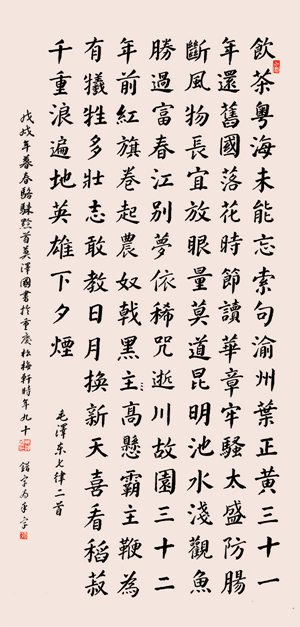 飲茶粵海未能忘索句渝州葉正黃三十一
年還舊國落花時節讀華章牢騷太盛防腸
斷風物長宜放眼量莫道昆明池水淺觀魚
勝過富春江別夢依稀咒逝川故園三十二
年前紅旗卷起農奴戟黑主高懸霸主鞭為
有犧牲多壯志敢教日月換新天喜看稻菽
千重浪遍地英雄下夕煙
毛澤东七律二首
戊戌年暮春駱黔首莫澤國書於重慶松梅軒時年九十
錯字为手字